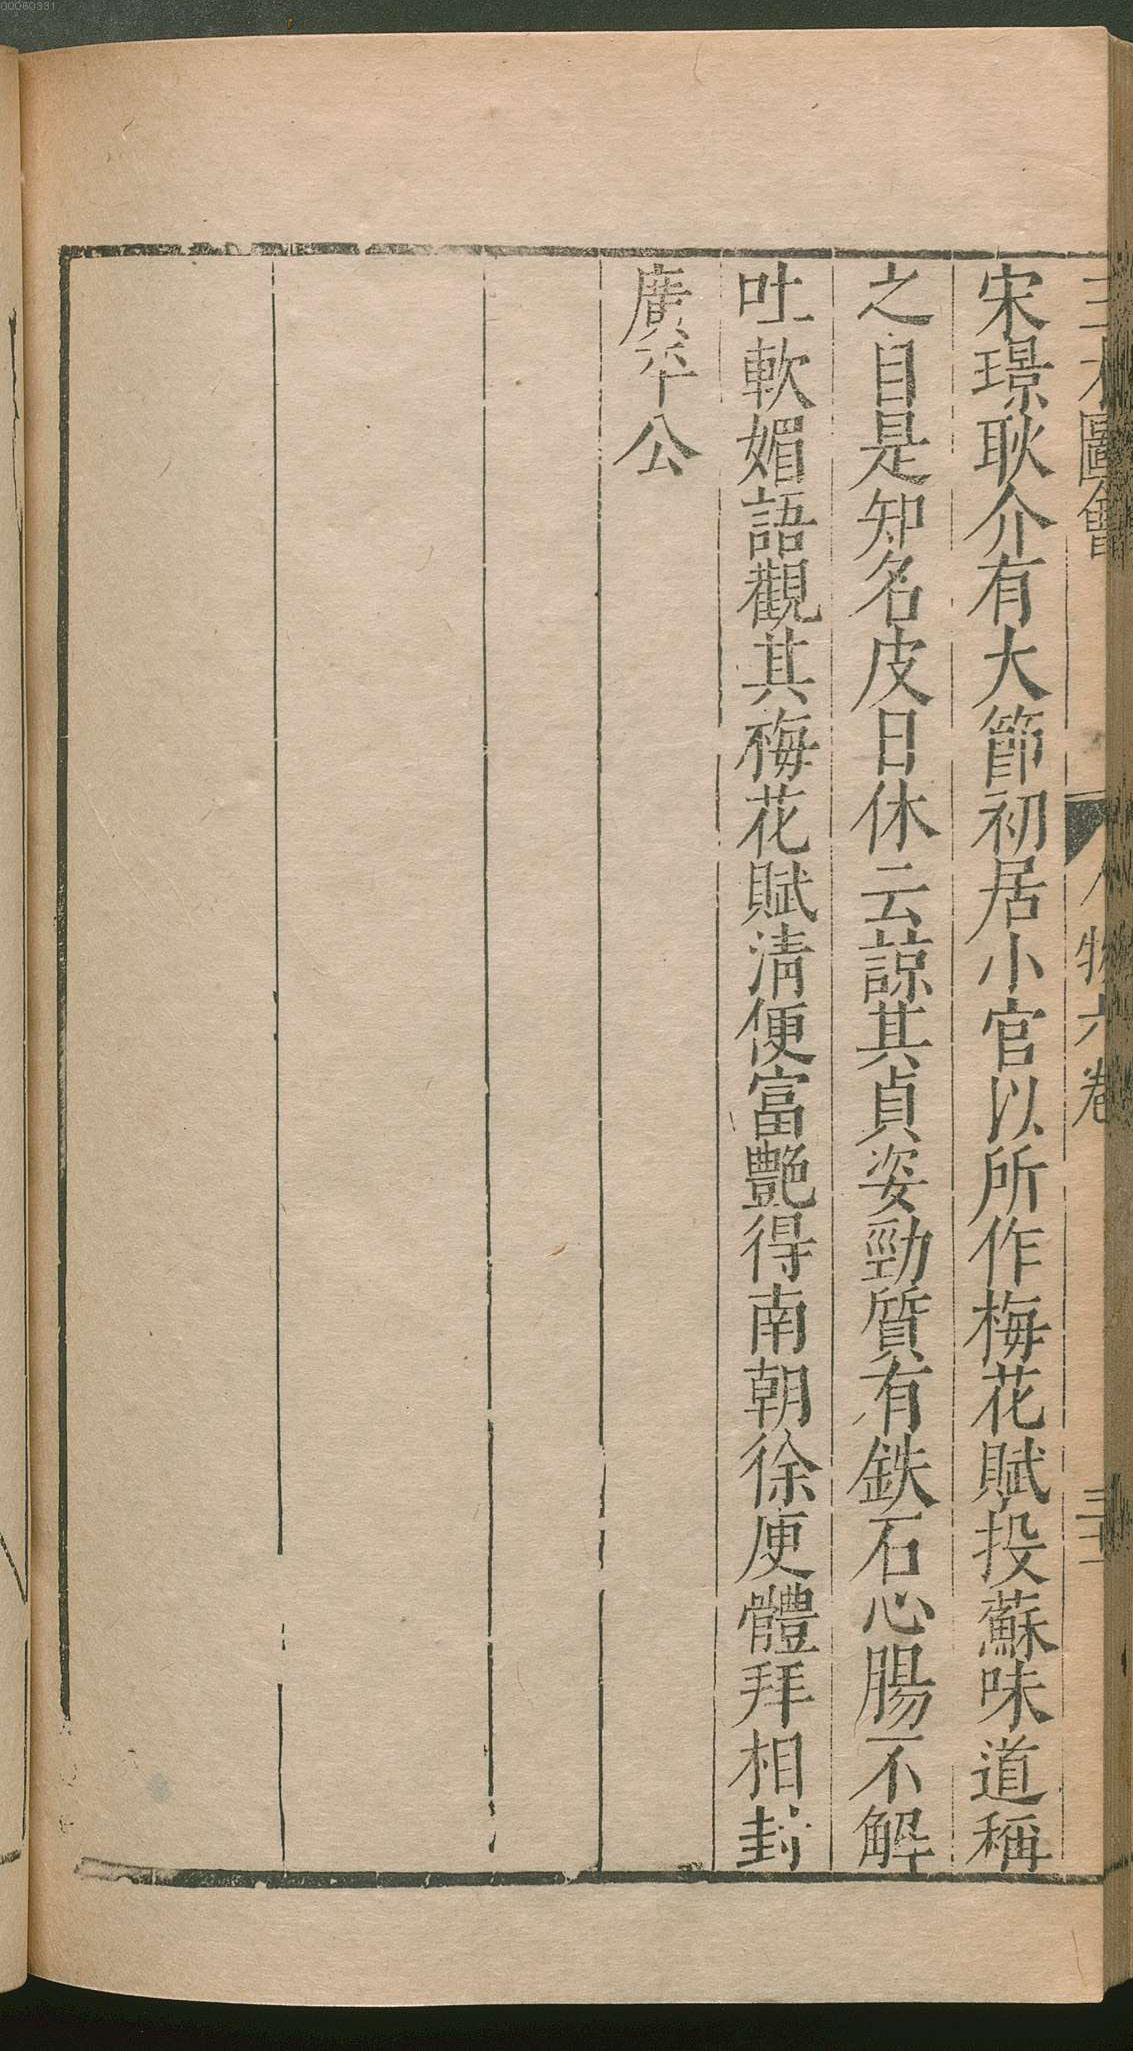 00060331
三才圖會 人物六卷 三十二
宋璟耿介有大節初居小官以所作梅花賦投蘇味道稱
之自是知名皮日休云諒其貞姿勁質有鉄石心腸不解
吐軟媚語觀其梅花賦清便富艷得南朝徐庾體拜相封
廣平公